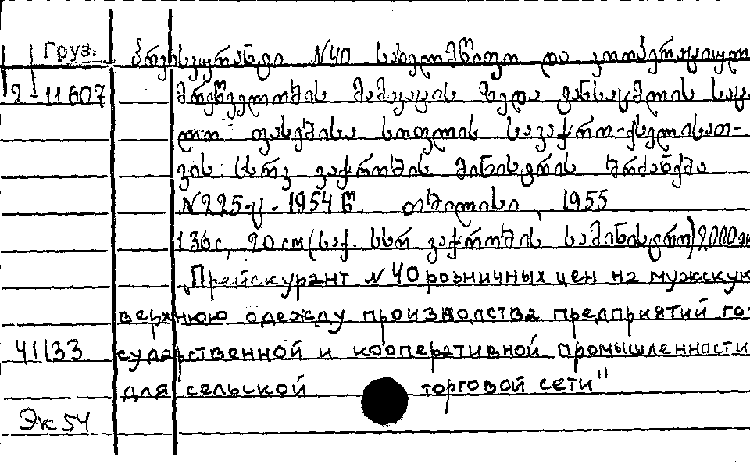 Груз. პრეისკურანტი N40 სახელმწიფო და კოოპერაციული
2-11607 მრეწველობის მამაკაცის ზედა ტანსაცმლის საცა-
ლო ფასებისა სოფლის სავაჭრო ქსელისათ-
ვის: სსრკ ვაჭრობის მინისტრის ბრძანება
N225-ც. 1954 წ. თბილისი, 1955
136с, 20 см (საქ. სსრ ვაჭრობის სამინისტრო) 2000
„Прейскурант N40 розничных цен на мужскую
верхнюю одежду производства предприятий го-
41133 сударственной и кооперативной промышленности
для сельской торговой сети"
Эк 54